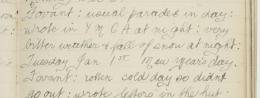 Tovant: usual parades in day:
wrote in Y M C A at night: very
bitter weather & fall of snow at night:
Tuesday Jan 1st New Year's day.
Tovant: rotten cold day so didnt
go out: wrote letters in the hut.